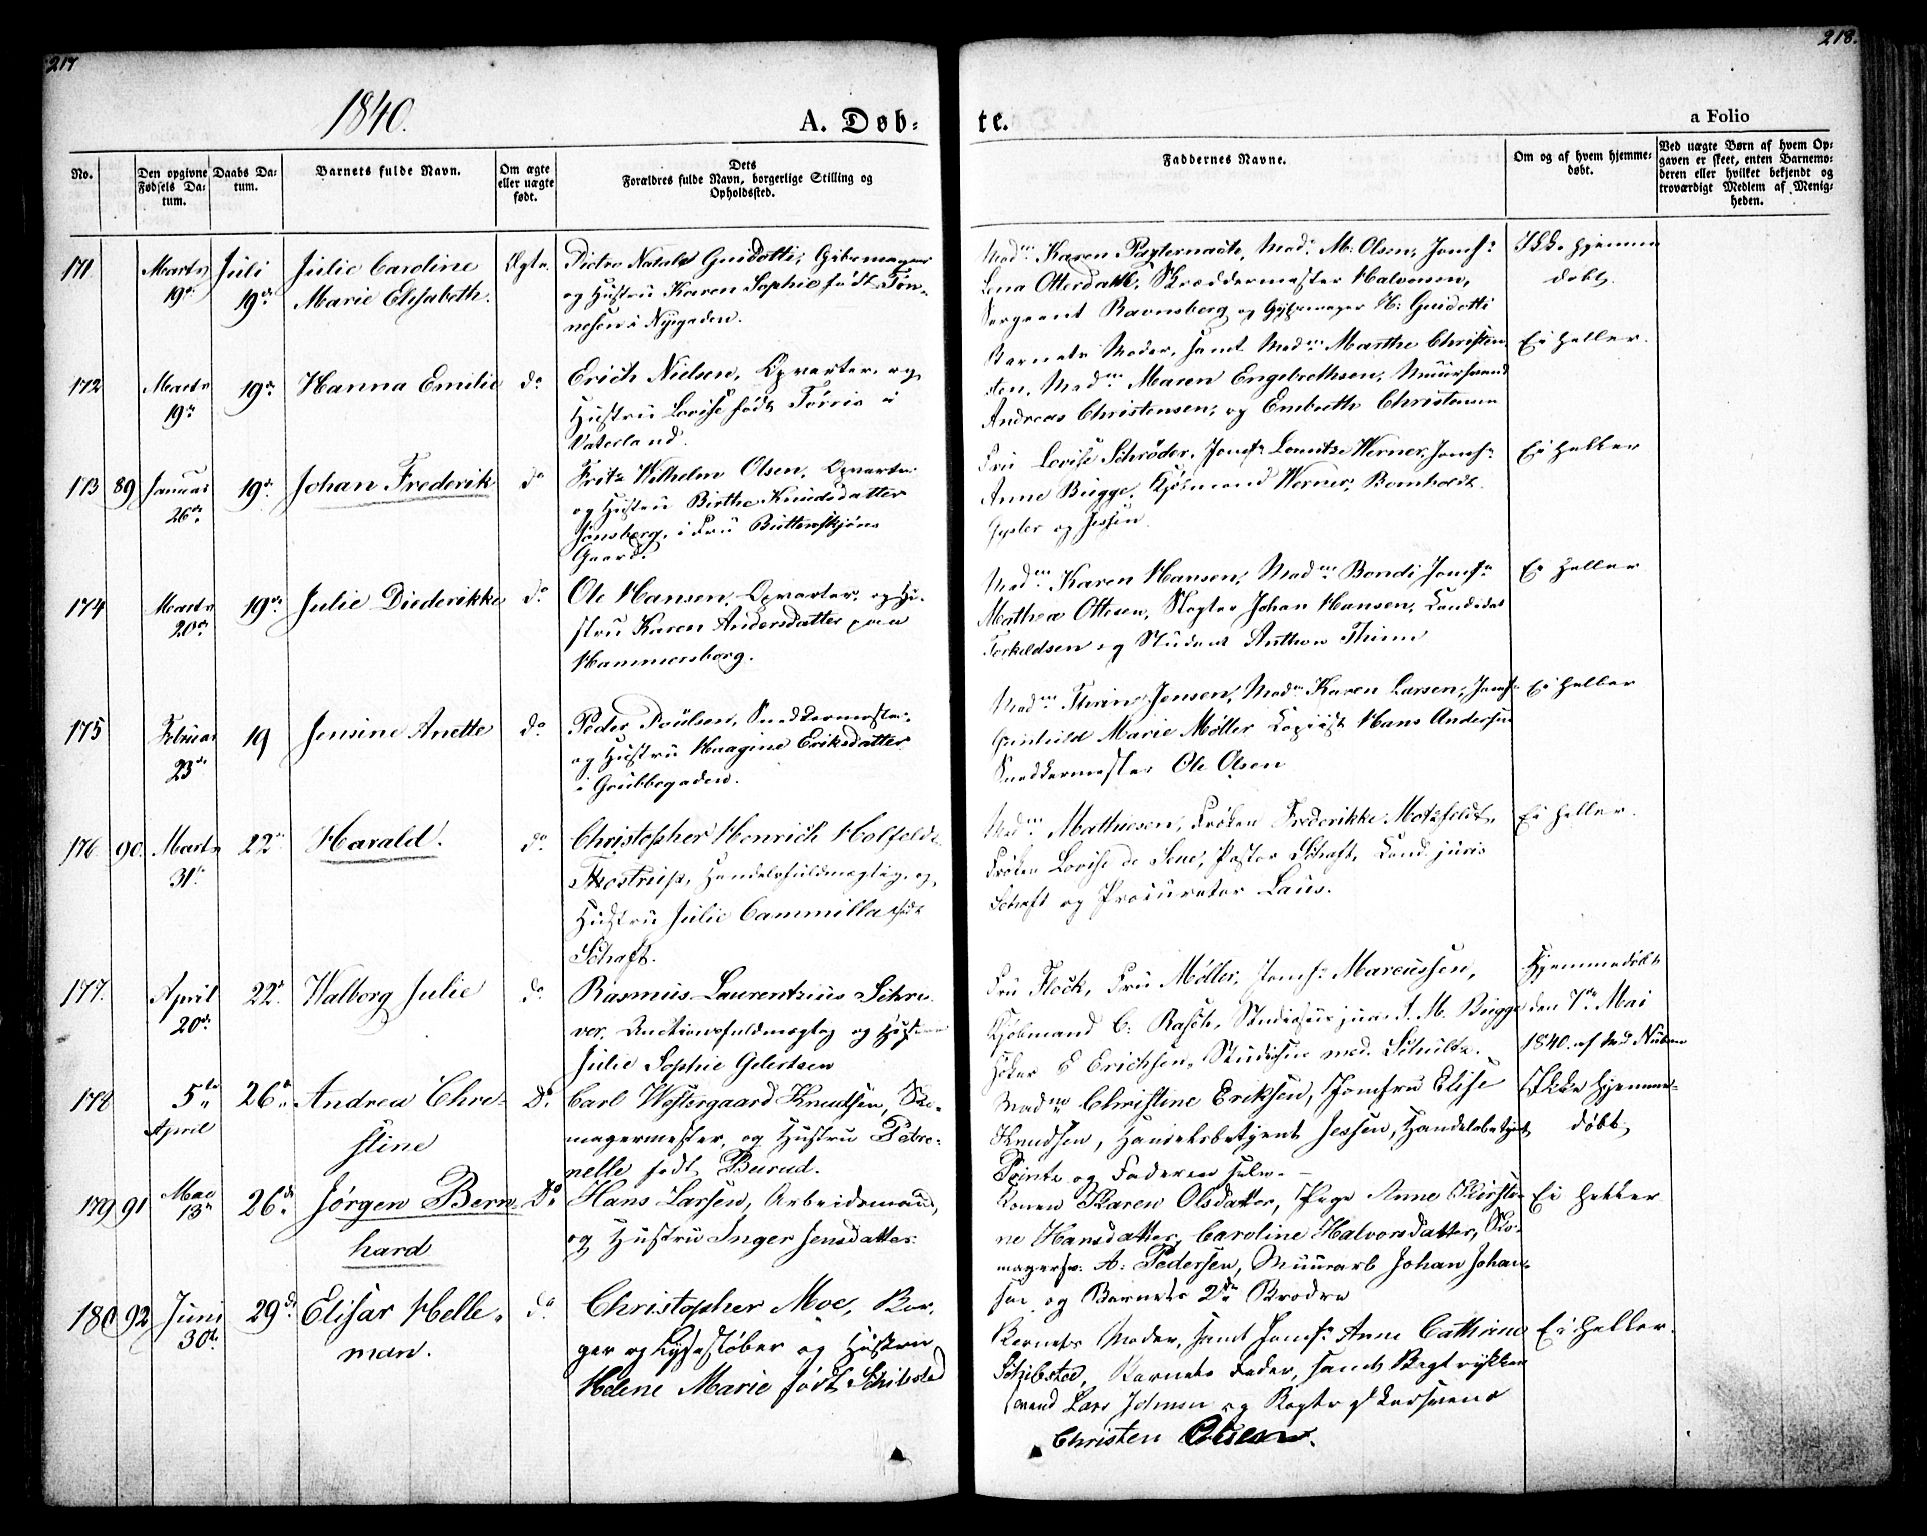 217
218.
1840.
A. Døb-
te.
a Folio
No.
Den opgivne Fødsels Datum.
Daabs Datum.
Barnets fulde Navn.
Om ægte eller uægte født.
Dets Forældres fulde Navn, borgerlige Stilling og Opholdssted.
Faddernes Navne.
Om og af hvem hjemmedøbt.
Ved uægte Børn af hvem Opgaven er skeet, enten Barnemoderen eller hvilket bekjendt og troværdigt Medlem af Menigheden.
171 Marts 19de Juli 19de Julie Caroline Marie Elisabeth. Ægte.
Guidotti, Gibsmager
og Hustru Karen Sophie født Tøn-
nesen i Nygaden.
Madm Karen Madm M. Olsen, Jomfr
Lena Otterdahl, Skræddermester Halvorsen,
Sergeant Ravnsberg og Gibsmager Guidotti
Ikke hjemme
døbt.
172 Marts 19de 19de Hanna Emilie do
Erich Nielsen, Opvarter og
Hustru Lovise født Tørris i
Vaterland.
Barnets Moder, samt Madm Marthe Christen
sen, Madm Maren Engebrethsen, Muursvend
Andreas Christensen, og Embreth Christensen
Ei heller.
173 89 Januar 26de 19de Johan Frederik do
Fritz Wilhelm Olsen, Opvarter
og Hustru Birthe Knudsdatter
Jonsberg, i Fru
Gaard.
Fru Lovise Schrøder, Jomfr Werner, Jomfr
Anne Bugge, Kjøbmand Werner, Bomholdt
og Jessen
Ei heller
174 Marts 20de 19de Julie Diederikke do
Ole Hansen, Opvarter, og Hu-
stru Karen Andersdatter paa
Hammersborg.
Madm Karen Hansen, Madm Bondi, Jomfr
Mathea Ottesen, Slagter Johan Hansen, Candidat
Torkildsen og Student Anthon Thime
Ei heller
175 Februar 23de 19 Jensine Anette do
Peder Poulsen, Snedkermester
og Hustru Haagine Eriksdatter
i Grubbegaden.
Madm Jensen, Madm Karen Larsen, Jomfr
Gunhild Marie Møller Copiist Hans Andersen
Snedkermester Ole Olsen
Ei heller
176 90. Marts 31te 22de Harald. do
Christopher Henrich Holfeldt
Tostrup, Handelsfuldmægtig, og
Hustru Julie Cammilla født
Schaft.
Madm Mathiesen, Frøken Frederikke Motzfeldt,
Frøken Lovise de Seue, Pastor Schaft, Cand. juris
Schaft og Procurator Laus.
Ei heller.
177. April 20de 22de Walborg Julie do
Rasmus Laurentzius Schri
ver, Auctionsfuldmægtig og Hustru
Julie Sophie Gelertsen
Fru Flock, Fru Møller, Jomfr Marcussen,
Kjøbmand C. Rasch, Studiosus jur. J. M. Bugge
Høker E Erichsen, Studiosus med. Schultz.
Hjemmedøbt
den 7de Mai
1840. af
178 5te April 26de Andrea Chri-
stine Do
Carl Westergaard Knudsen, Sko-
magermester, og Hustru Petro-
nelle født Burud.
Madme Christine Eriksen, Jomfru Elise
Knudsen, Handelsbetjent Jessen, Handelsbetjent
og Faderen selv.
Ikke hjemme-
døbt.
179 91 Mai 13de 26de Jørgen Bern-
hard Do
Hans Larsen, Arbeidsmand,
og Hustru Inger Jensdatter.
Konen Karen Olsdatter, Pige Anne Kirsti-
ne Hansdatter, Caroline Halvorsdatter, Sko-
magersv. A. Pedersen, Muurarb Johan Johan-
sen og Barnets
Ei heller
180 92 Juni 30te 29de Elisar Helle-
man. do
Christopher Moe, Bor-
ger og Lysestøber og Hustru
Helene Marie født Schibsted
Barnets Moder, samt Jomfr Anne Cathrine
Schibsted, Barnets Fader, samt Bogtrykker
svend Lars Johnsen og
Christen Olsen.
Ei heller.